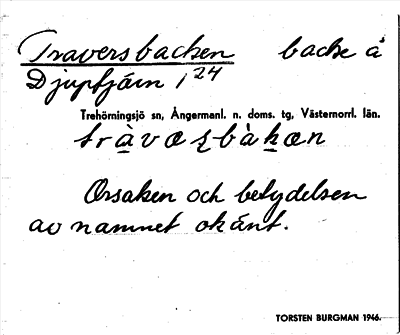 Traversbacken backe å
Djuptjärn 1²⁴
Trehörningsjö sn, Ångermanl. n. doms. tg, Västernorrl. län.
Orsaken och betydelsen
av namnet okänt.
TORSTEN BURGMAN 1946.